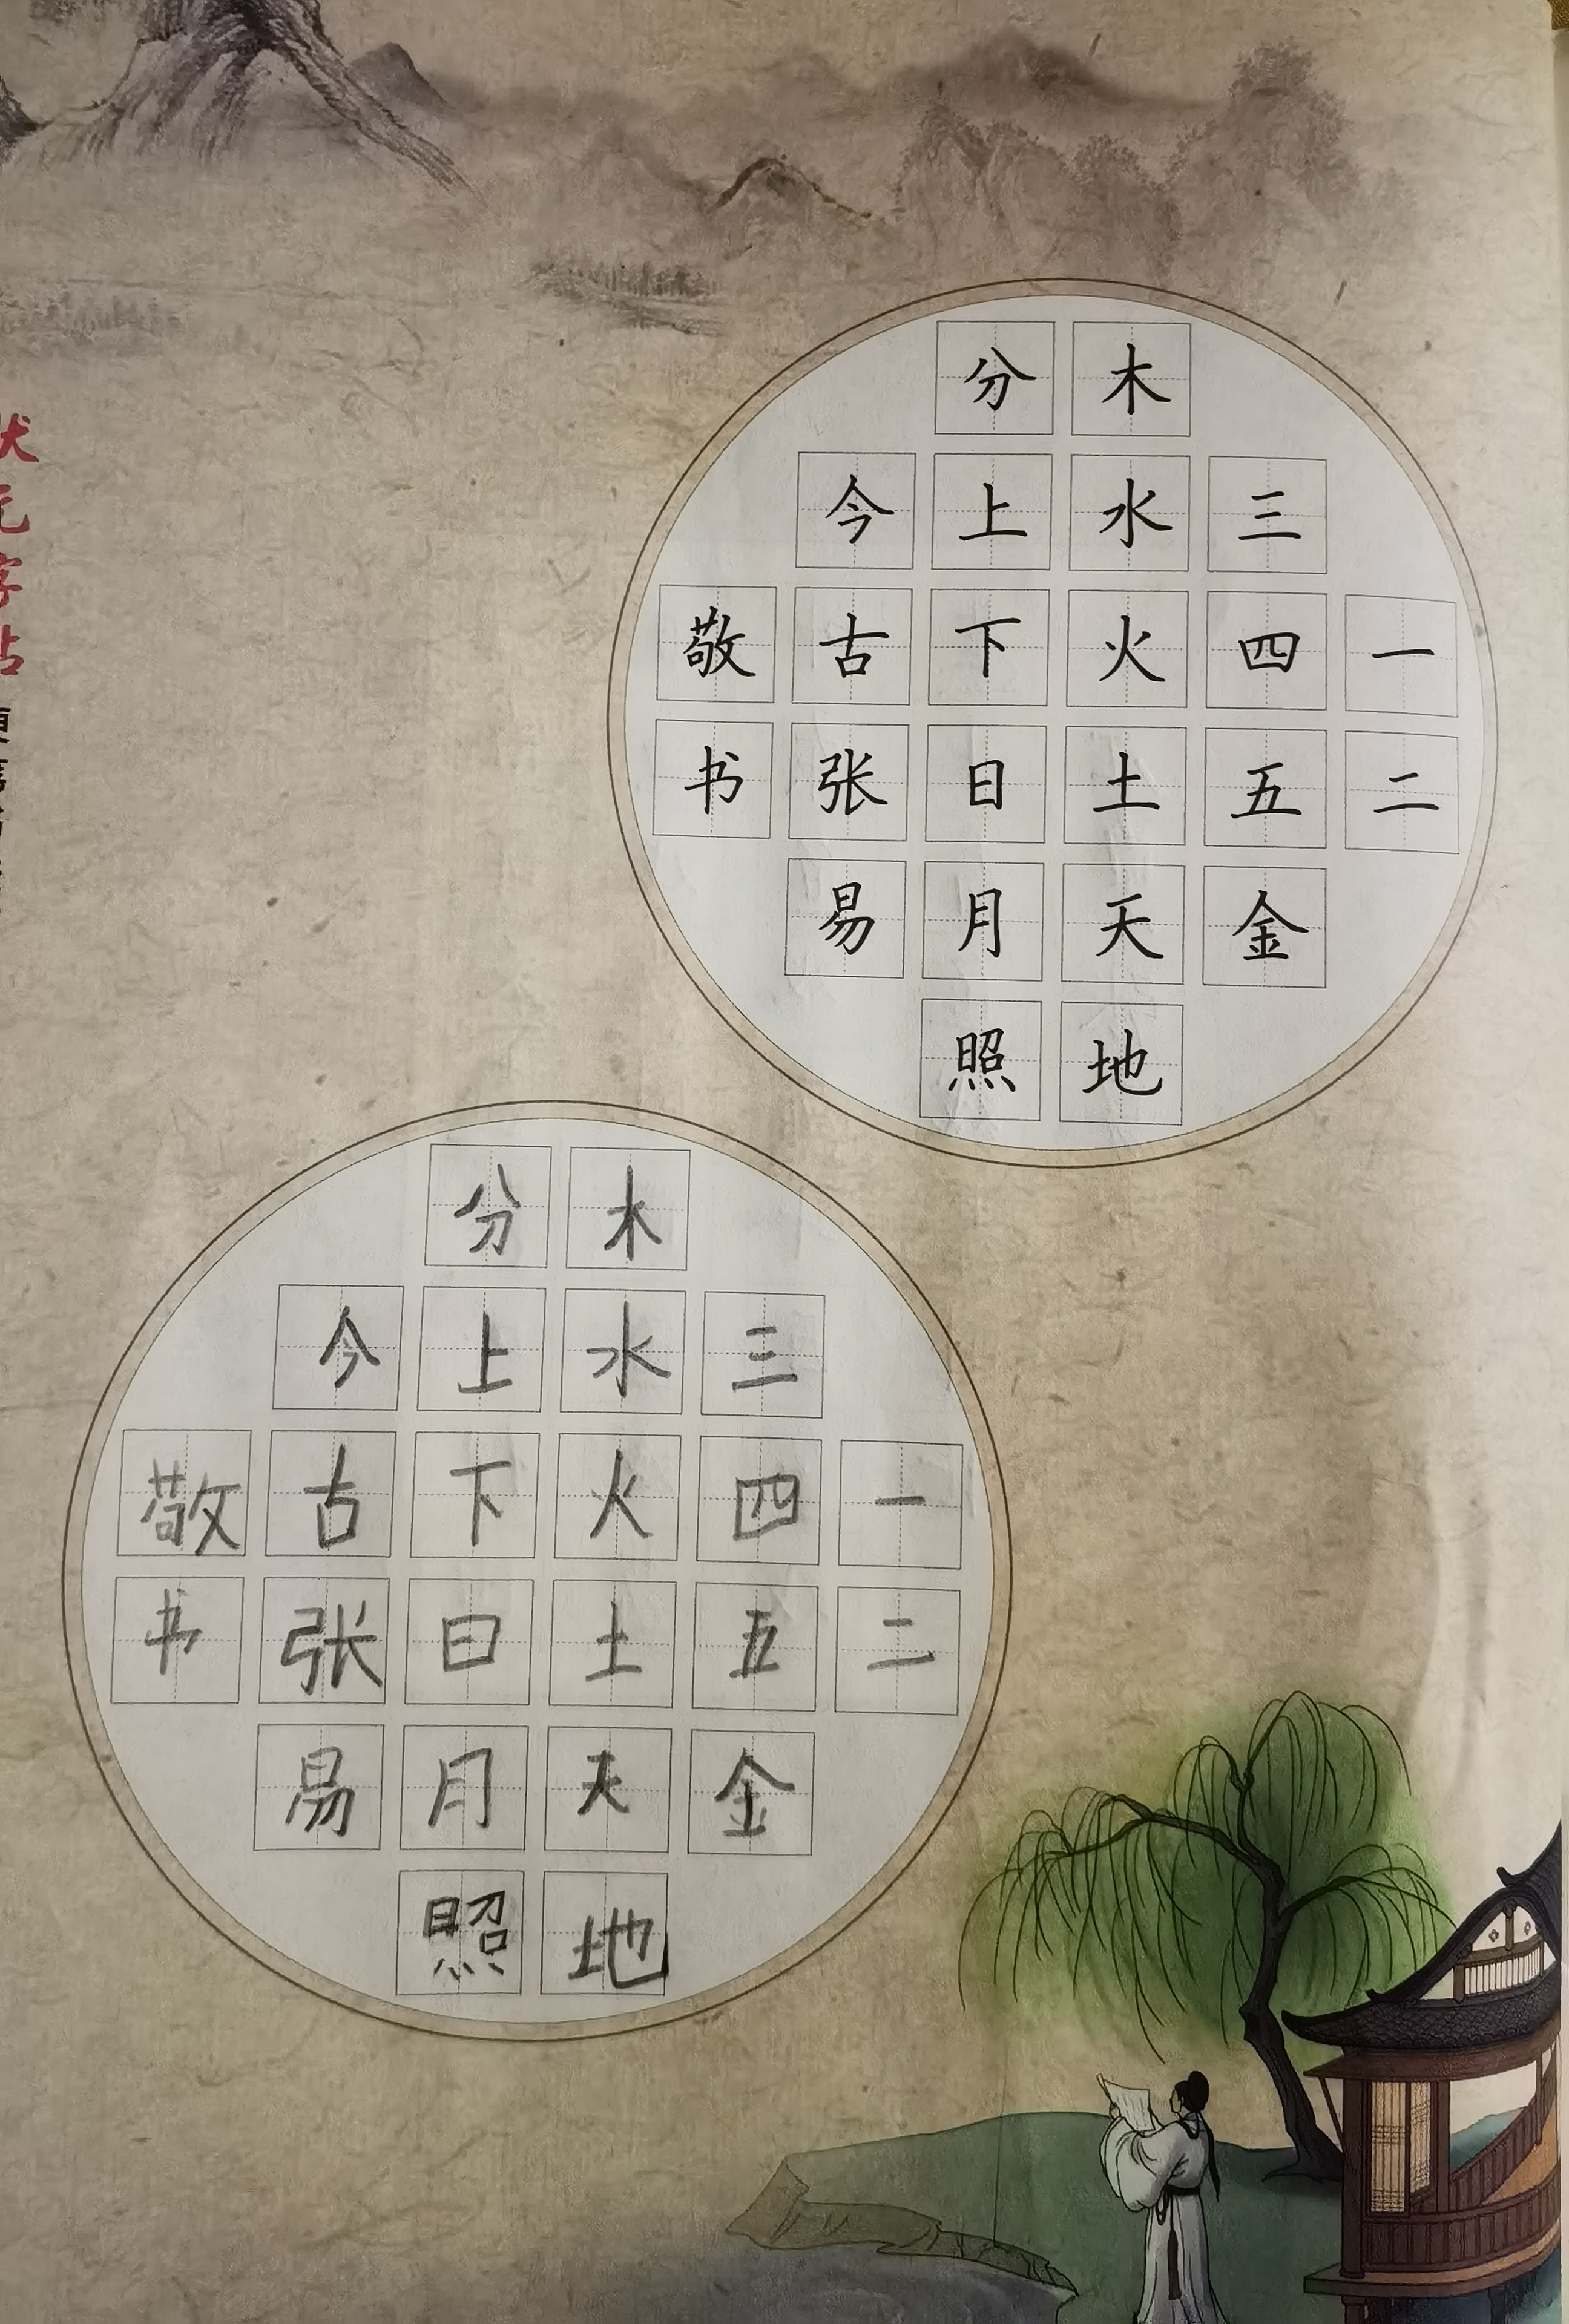 一二
三四五金
木水火土天地
分上下日月照
今古张易
敬书
一二
三四五金
木水火土天地
分上下日月照
今古张易
敬书